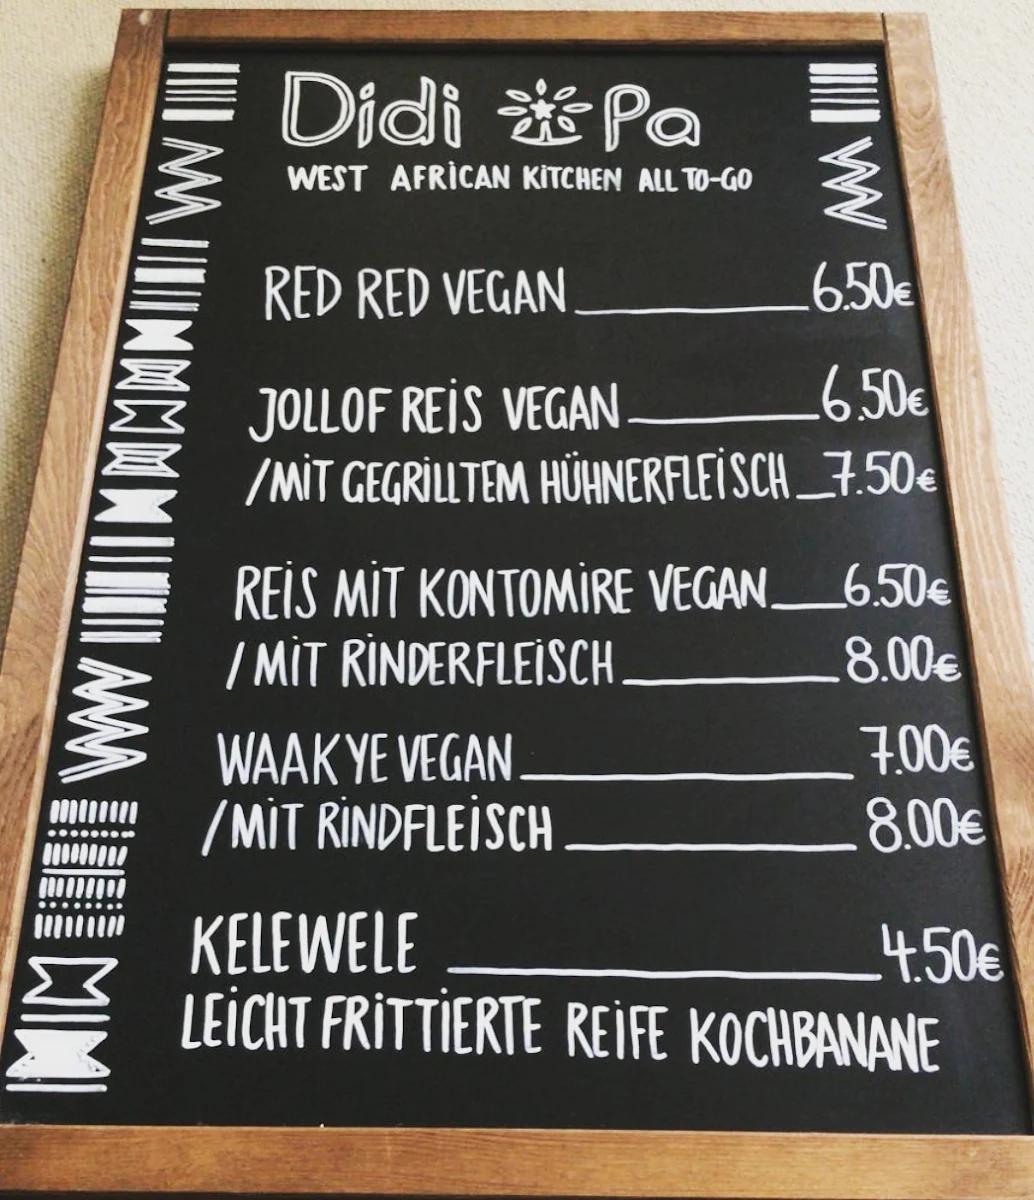 Didi Pa
WEST AFRICAN KITCHEN ALL TO-GO
RED RED VEGAN 6.50€
JOLLOF REIS VEGAN 6.50€
/MIT GEGRILLTEM HÜHNERFLEISCH 7.50€
REIS MIT KONTOMIRE VEGAN 6.50€
/MIT RINDERFLEISCH 8.00€
WAAKYE VEGAN 7.00€
/MIT RINDFLEISCH 8.00€
KELEWELE 4.50€
LEICHT FRITTIERTE REIFE KOCHBANANE